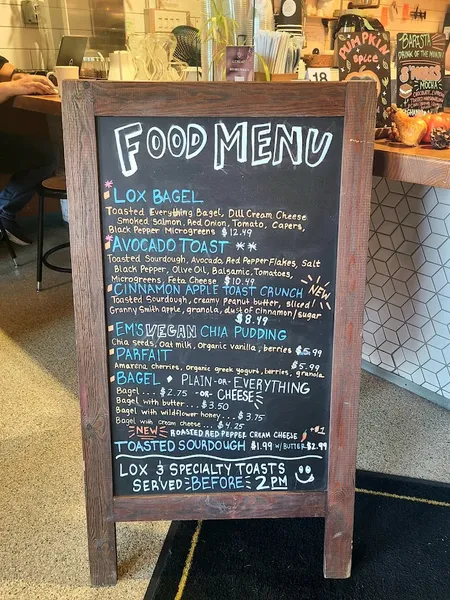 PUMPKIN
SPICE
BARISTA
DRINK OF THE MONTH
S'MORES
MOCHA
18
FOOD MENU
LOX BAGEL
Toasted Everything Bagel, Dill Cream Cheese
Smoked Salmon, Red Onion, Tomato, Capers,
Black Pepper Microgreens $12.49
AVOCADO TOAST **
Toasted Sourdough, Avocado, Red Pepper Flakes, Salt
Black Pepper, Olive Oil, Balsamic, Tomatoes,
Microgreens, Feta Cheese $10.49
NEW
CINNAMON APPLE TOAST CRUNCH
Toasted Sourdough, creamy peanut butter, sliced
Granny Smith apple, granola, dust of cinnamon/sugar
$8.49
EM'S VEGAN CHIA PUDDING
Chia seeds, Oat milk, Organic vanilla, berries $5.99
PARFAIT $5.99
Amarena cherries, organic greek yogurt, berries, granola
BAGEL • PLAIN-OR-EVERYTHING
-OR- CHEESE
Bagel... $2.75
Bagel with butter... $3.50
Bagel with wildflower honey... $3.75
Bagel with cream cheese... $4.25
NEW ROASTED RED PEPPER CREAM CHEESE +$1
TOASTED SOURDOUGH $1.99 w/ BUTTER $2.99
LOX & SPECIALTY TOASTS
SERVED BEFORE 2PM